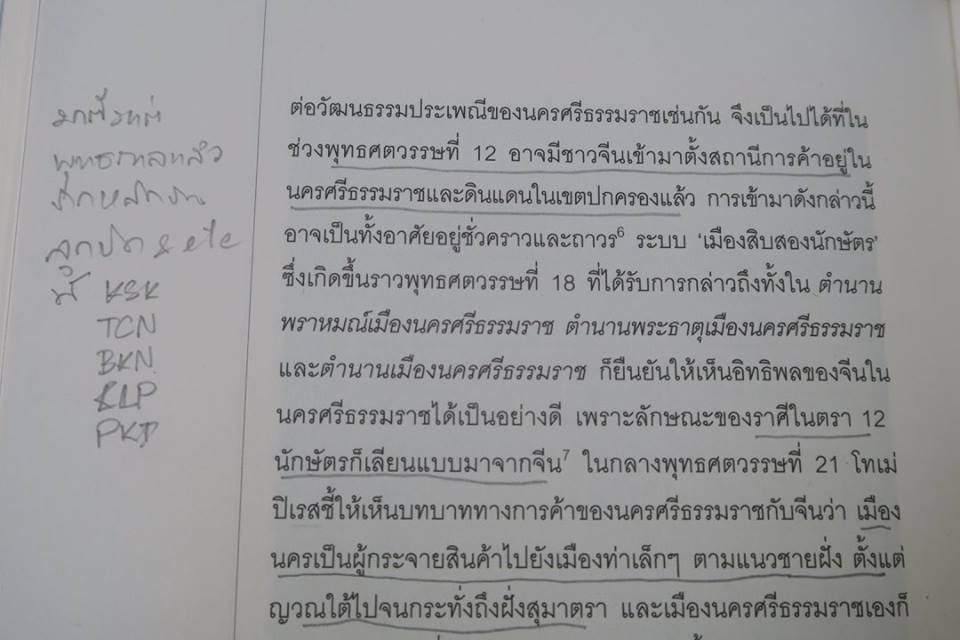 มาตั้งแต่
พุทธกาลแล้ว
จากหลักฐาน
ลูกปัด & etc
มี KSK
TCN
BKN
KLP
PKD
ต่อวัฒนธรรมประเพณีของนครศรีธรรมราชเช่นกัน จึงเป็นไปได้ที่ใน
ช่วงพุทธศตวรรษที่ 12 อาจมีชาวจีนเข้ามาตั้งสถานีการค้าอยู่ใน
นครศรีธรรมราชและดินแดนในเขตปกครองแล้ว การเข้ามาดังกล่าวนี้
อาจเป็นทั้งอาศัยอยู่ชั่วคราวและถาวร⁶ ระบบ ‘เมืองสิบสองนักษัตร’
ซึ่งเกิดขึ้นราวพุทธศตวรรษที่ 18 ที่ได้รับการกล่าวถึงทั้งใน ตำนาน
พราหมณ์เมืองนครศรีธรรมราช ตำนานพระธาตุเมืองนครศรีธรรมราช
และตำนานเมืองนครศรีธรรมราช ก็ยืนยันให้เห็นอิทธิพลของจีนใน
นครศรีธรรมราชได้เป็นอย่างดี เพราะลักษณะของราศีในตรา 12
นักษัตรก็เลียนแบบมาจากจีน⁷ ในกลางพุทธศตวรรษที่ 21 โทเม่
ปิเรสชี้ให้เห็นบทบาททางการค้าของนครศรีธรรมราชกับจีนว่า เมือง
นครเป็นผู้กระจายสินค้าไปยังเมืองท่าเล็กๆ ตามแนวชายฝั่ง ตั้งแต่
ญวณใต้ไปจนกระทั่งถึงฝั่งสุมาตรา และเมืองนครศรีธรรมราชเองก็